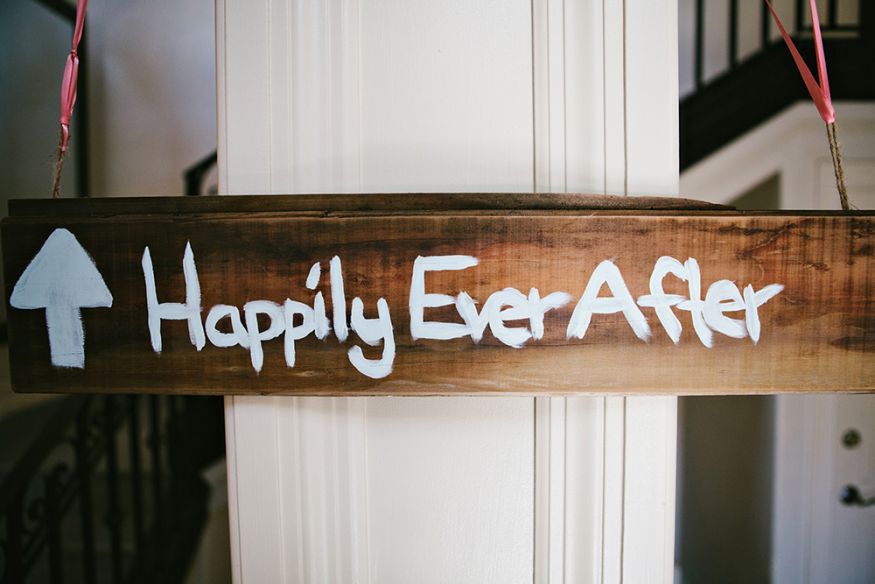 Happily Ever After